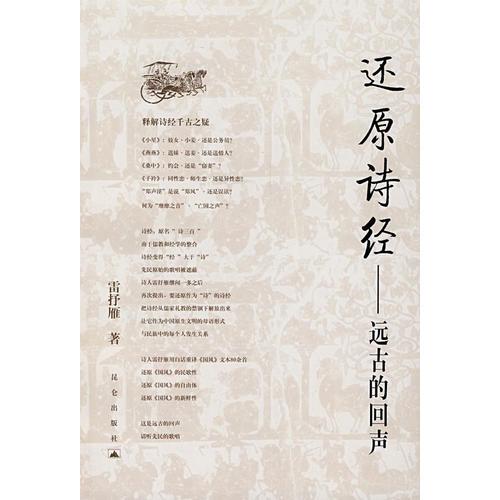 还原诗经——远古的回声
释解诗经千古之疑
《小星》：妓女·小妾·还是公务员？
《燕燕》：送妹·送妾·还是送情人？
《桑中》：约会·还是“窃妻”？
《子衿》：同性恋·师生恋·还是异性恋？
“郑声淫”是说“郑风”·还是误读？
何为“靡靡之音”·“亡国之声”？
诗经，原名“诗三百”
由于儒教和经学的整合
诗经变得“经”大于“诗”
先民原始的歌唱被遮蔽
诗人雷抒雁继闻一多之后
再次提出，要还原作为“诗”的诗经
把诗经从儒家礼教的禁锢下解放出来
让它作为中国原生文明的母语形式
与民族中的每个人发生关系
诗人雷抒雁用白话重译《国风》文本80余首
还原《国风》的民歌性
还原《国风》的自由体
还原《国风》的新鲜性
这是远古的回声
请听先民的歌唱
雷抒雁 著
昆仑出版社